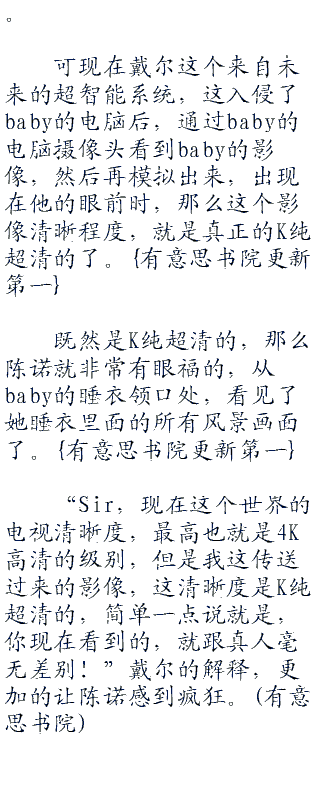 。
可现在戴尔这个来自未
来的超智能系统，这入侵了
baby的电脑后，通过baby的
电脑摄像头看到baby的影
像，然后再模拟出来，出现
在他的眼前时，那么这个影
像清晰程度，就是真正的K纯
超清的了。{有意思书院更新
第一}
既然是K纯超清的，那么
陈诺就非常有眼福的，从
baby的睡衣领口处，看见了
她睡衣里面的所有风景画面
了。{有意思书院更新第一}
“Sir，现在这个世界的
电视清晰度，最高也就是4K
高清的级别，但是我这传送
过来的影像，这清晰度是K纯
超清的，简单一点说就是，
你现在看到的，就跟真人毫
无差别！”戴尔的解释，更
加的让陈诺感到疯狂。(有意
思书院)